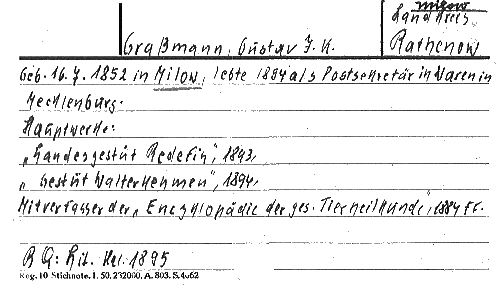 Milow
Landkreis
Graßmann, Gustav F. K.
Rathenow
Geb. 16.7. 1852 in Milow, lebte 1894 als Postsekretär in Waren in
Mecklenburg.
Hauptwerke:
„Landesgestüt Redefin", 1893,
„Gestüt Walterkehmen", 1894,
Mitverfasser der „Encyklopädie der ges. Tierheilkunde", 1884 ff.
B Q: Lit. Kal. 1895
Reg. 10 Stichnote. I. 50. 232000. A. 803. S. 4.62